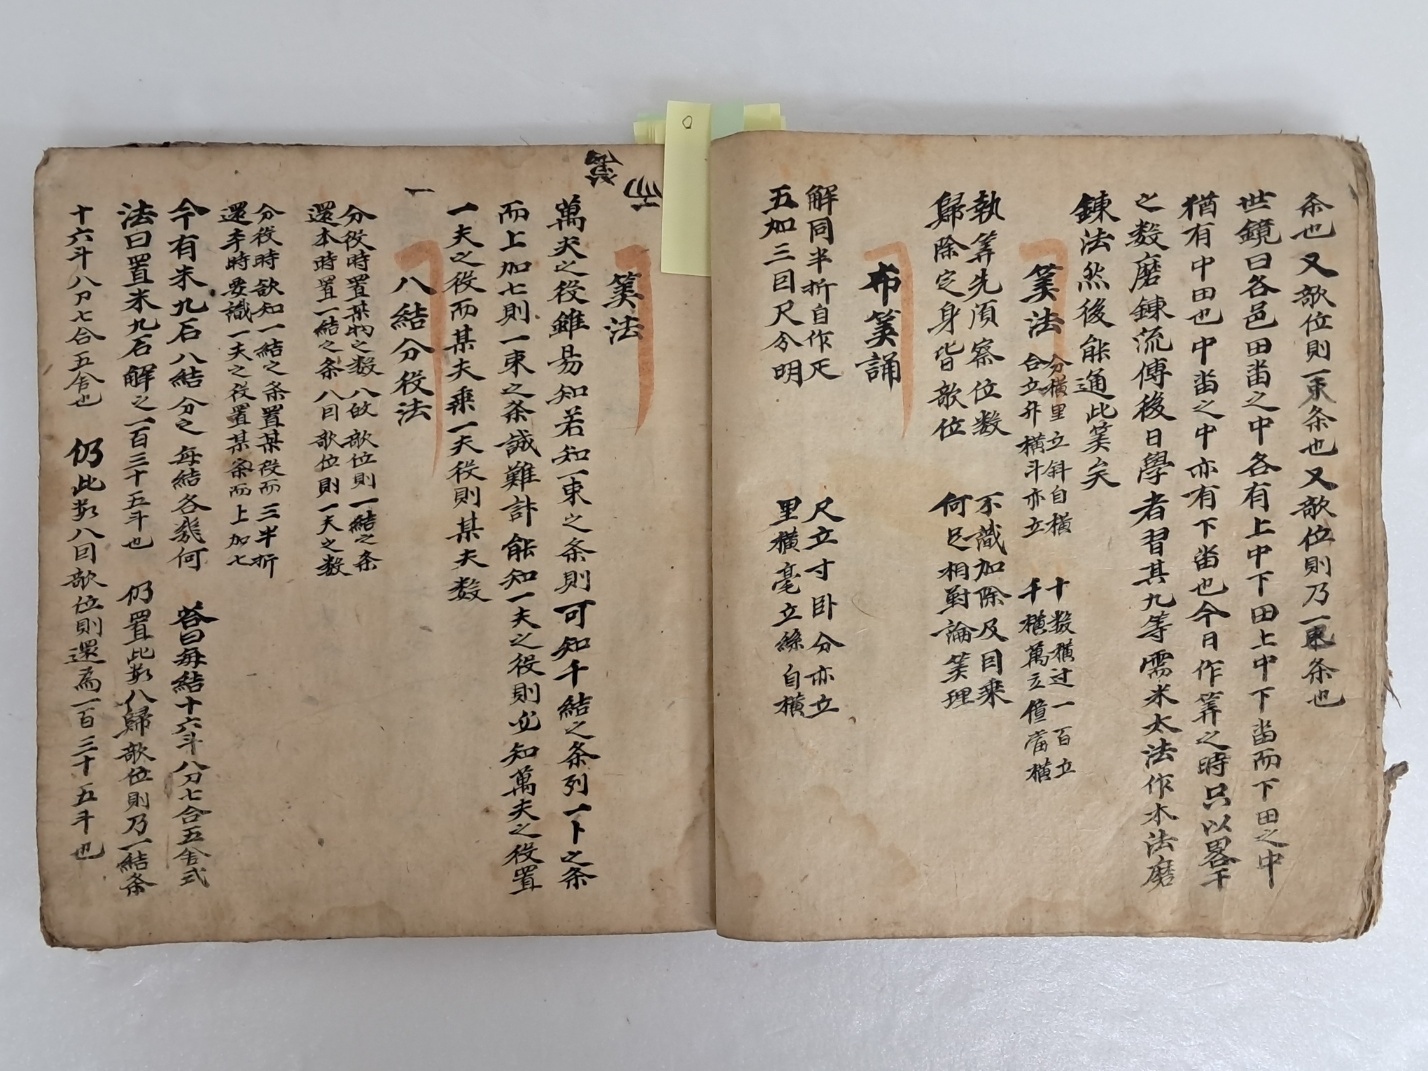 条也又歜位則一束条也又歜位則乃一束条也
世鏡曰各邑田畓之中各有上中下田上中下畓而下田之中
猶有中田也中畓之中亦有下畓也今日作筭之時只以畧干
之数磨鍊流傳後日學者習其九等需米太法作木法磨
鍊法然後能通此筭矣
筭法
分横里立斜自横 十数横过一百立
合立升横斗亦立 千横萬立億當横
執筭先須察位数 不識加除及目乗
歸除定身皆歜位 何足相對論筭理
布筭誦
解同半折自作疋 尺立寸卧分亦立
五加三目尺分明 里横毫立絲自横
筭法
萬夫之役雖易知若知一束之条則可知千結之条列一卜之条
而上加七則一束之条誠難計能知一夫之役則必知萬夫之役置
一夫之役而某夫乗一夫役則某夫数
一
八結分役法
分役時置某物之数八故歜位則一結之条
還本時置一結之条八目歜位則一夫之数
分役時欲知一結之条置某役而三半折
還本時要識一夫之役置某条而上加七
今有米九石八結分之每結各幾何 答曰每結十六斗八刀七合五舍式
法曰置米九石解之一百三十五斗也 仍置此数八歸歜位則乃一結条
十六斗八刀七合五舍也 仍此数八目歜位則還為一百三十五斗也